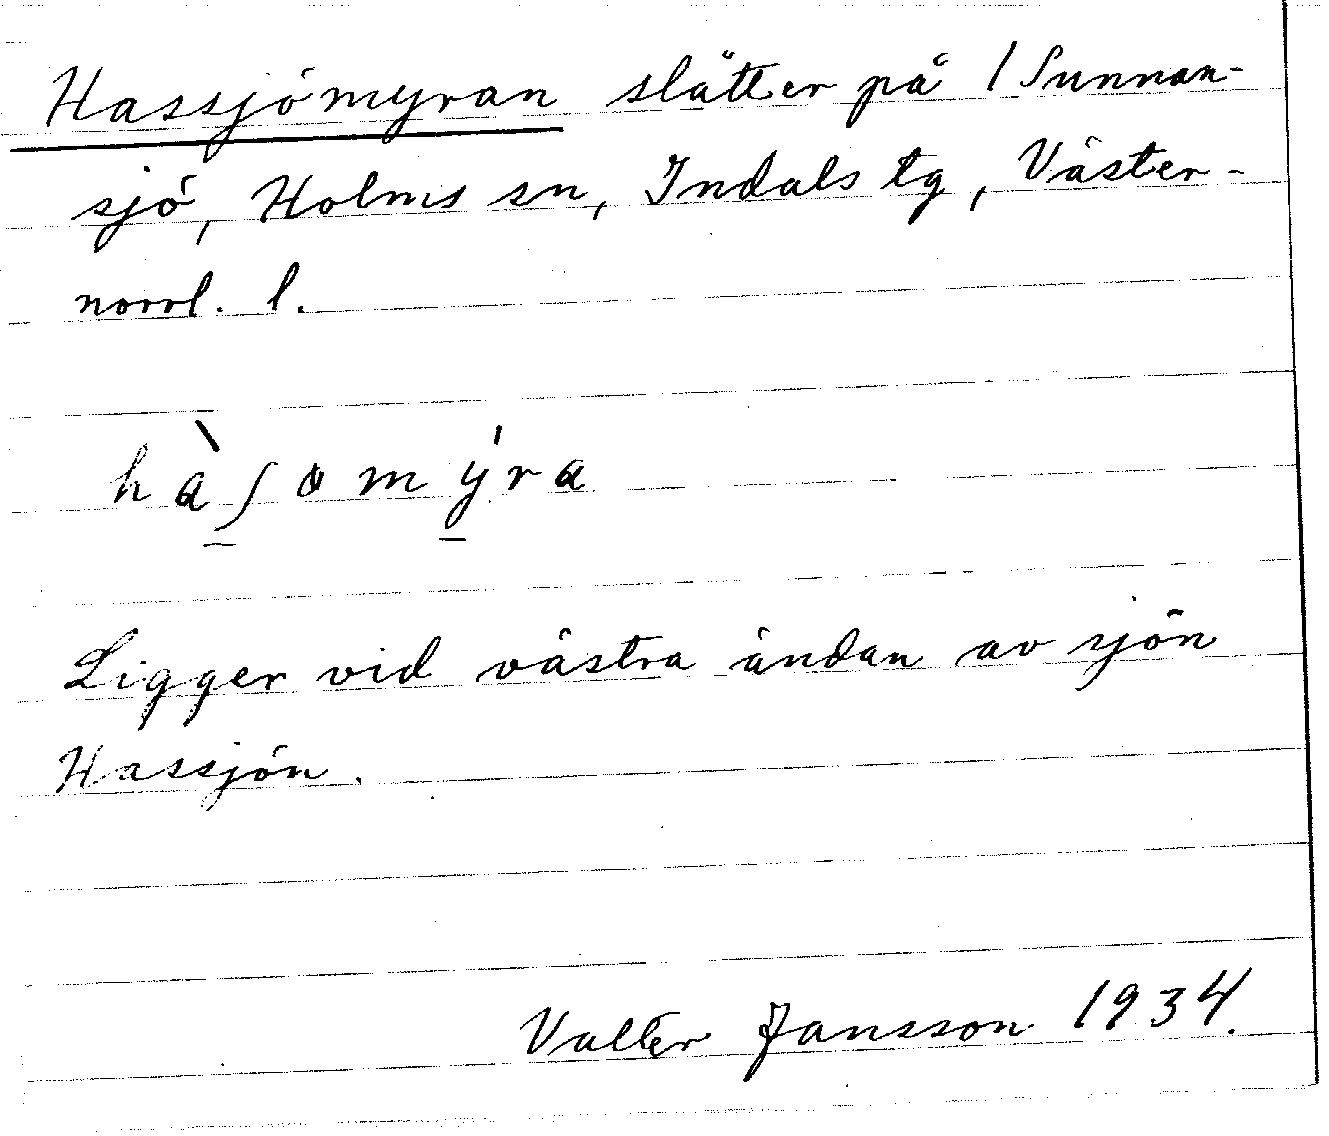 Hassjömyran slåtter på 1 Sunnan-
sjö, Holms sn, Indals tg, Väster-
norrl. l.
hàʃomýra
Ligger vid västra ändan av sjön
Hassjön.
Valter Jansson 1934.